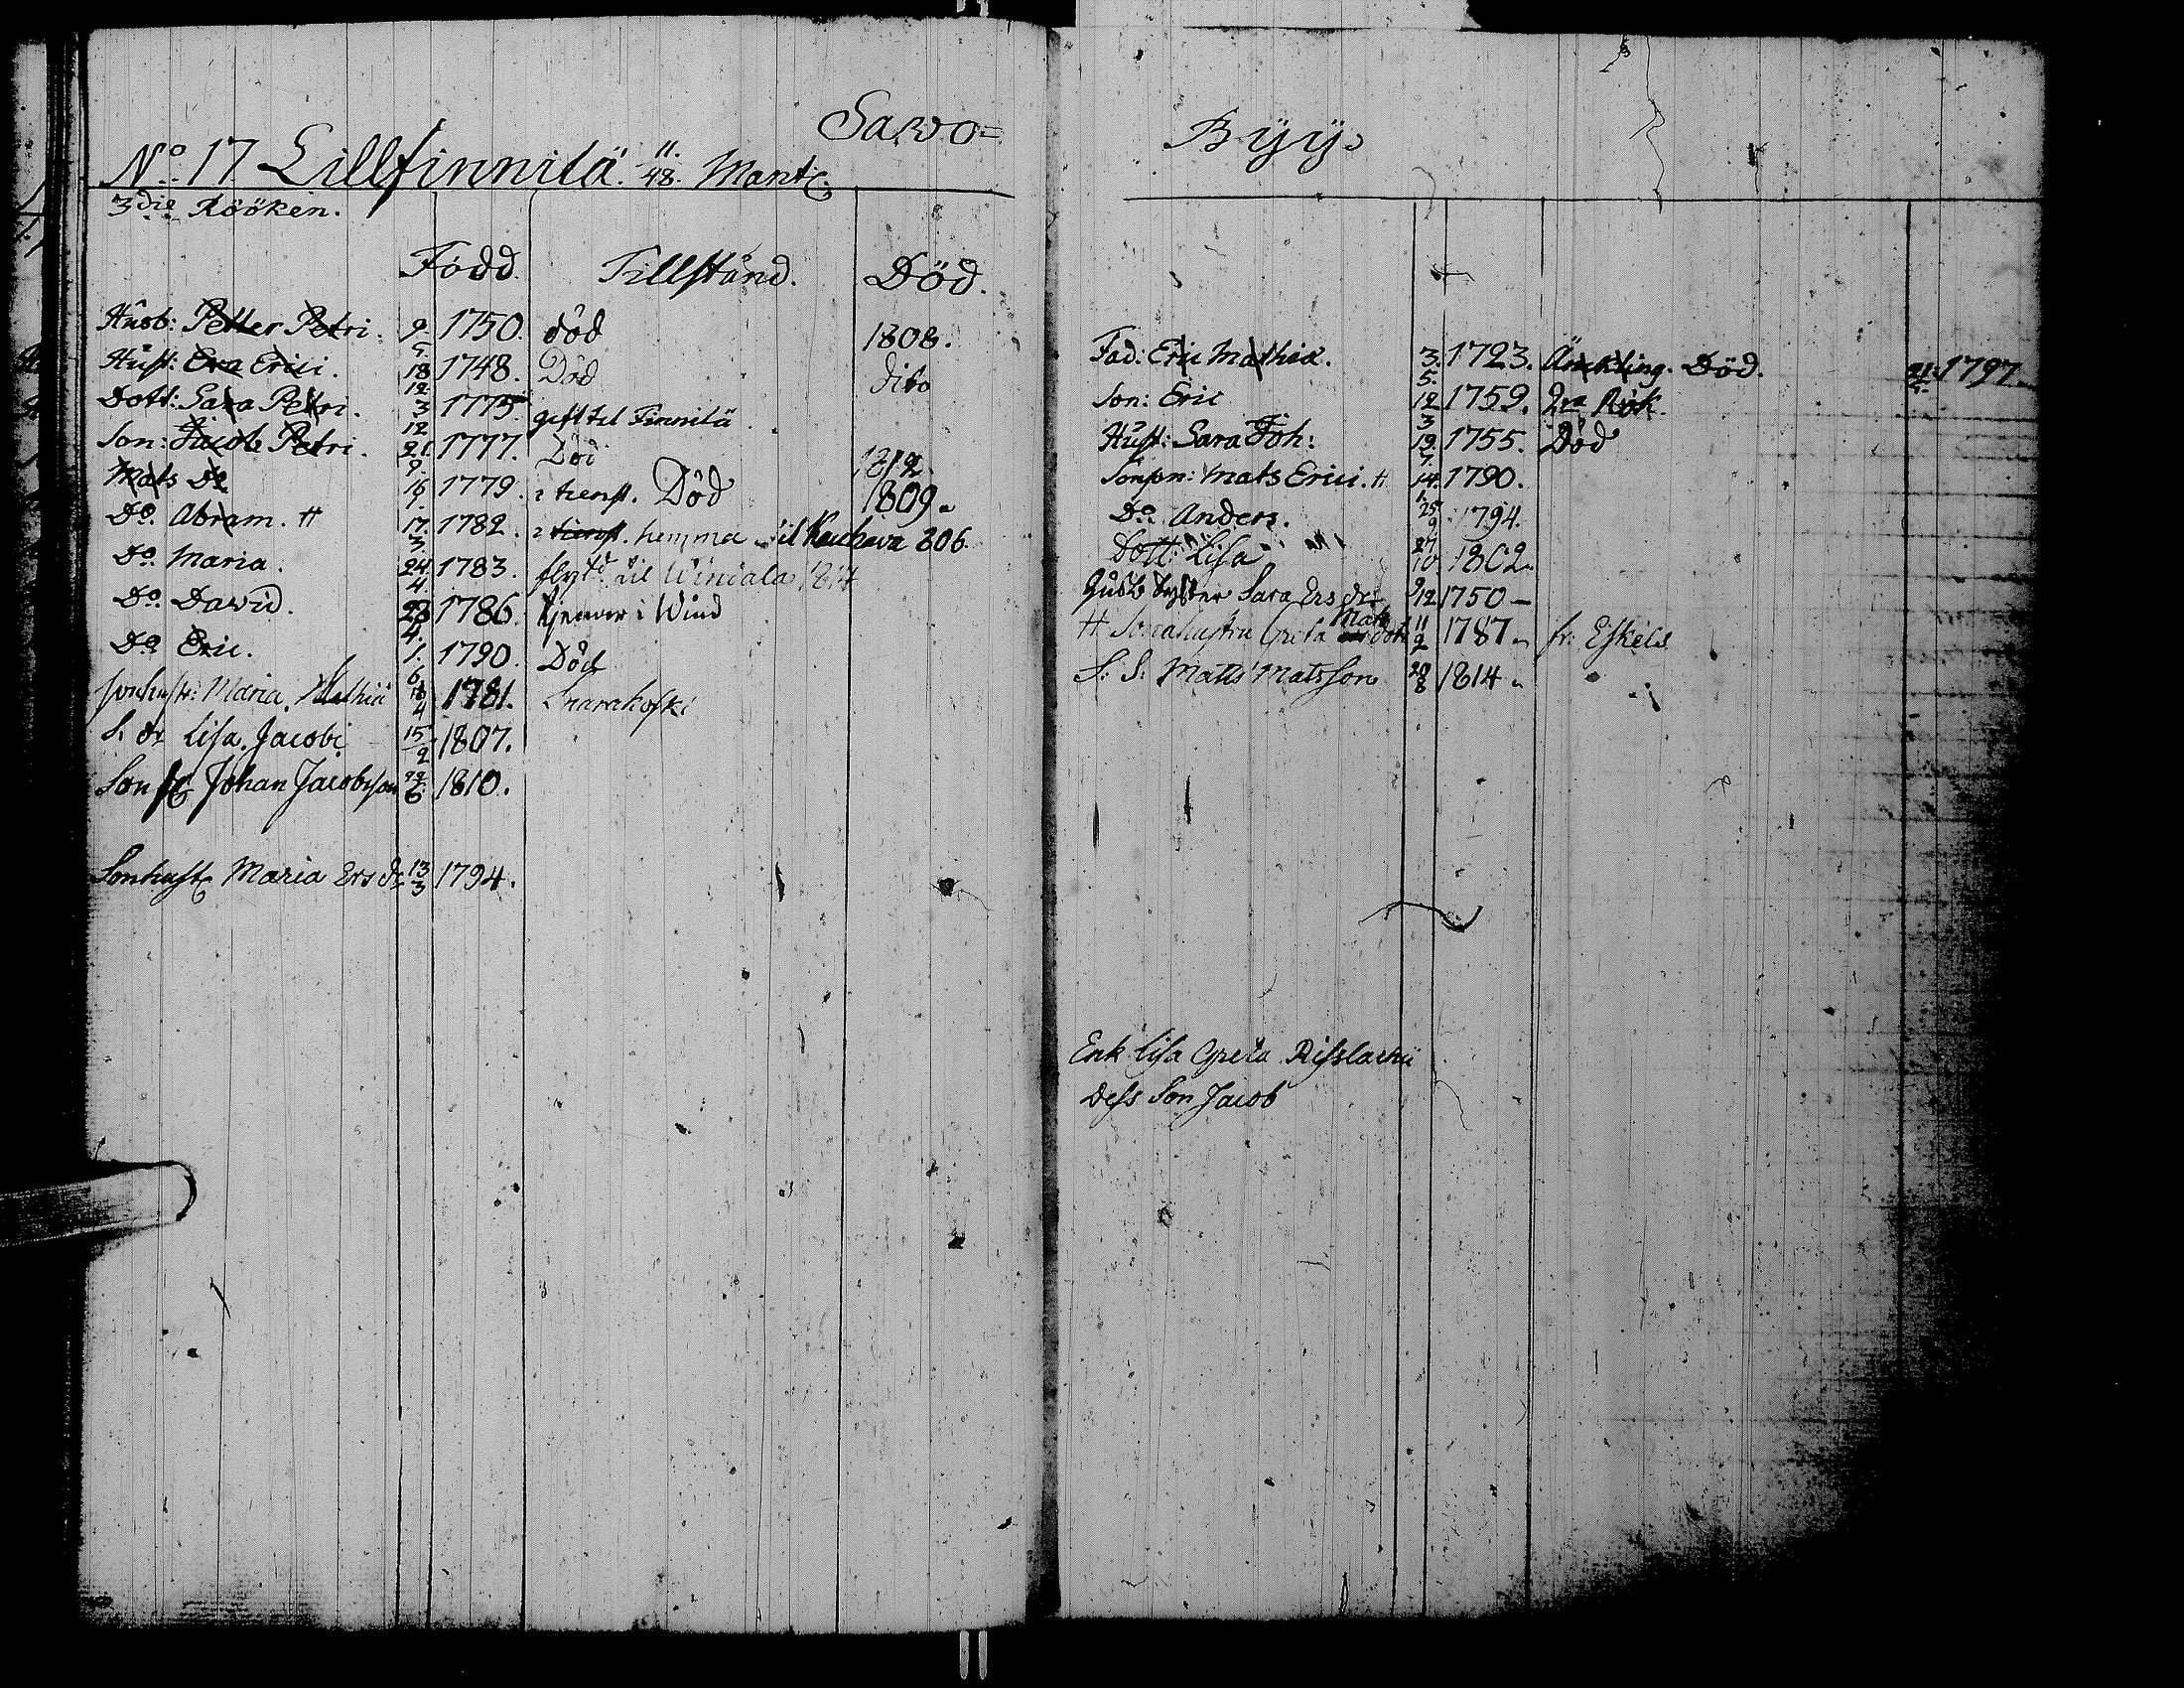 Sawo=
No 17 Lillfinnilä. 11./48. Mantl:
3die Rööken.
Född. Tillstånd. Död.
Husb: Petter Petri. 9/5. 1750. död 1808.
Hust: Eva Erici. 18/12 1748. Död dito
Dott: Sara Petri. 3/12 1775 gift til Finnilä.
Son: Jacob Petri. 21./9. 1777. Död 1812.
Mats Do 16/1. 1779. i tienst. Död 1809.
Do. Abram. # 17./3. 1782. i tienst. hemma til Kauhava 806
Do. Maria. 24/4. 1783. flytd til Windala 1814
Do. Dawid. 23/4. 1786. tjenar i Wind
Do Eric. 1./6. 1790. Död
sonhustr: Maria, Mathiæ 18/4 1781.
S. dr Lisa. Jacobi 15/2 1807.
Son Johan Jacobsson 6 1810.
Sonhust Maria Ers dr 13/3 1794.
Byy.
Fad: Eric Mathiæ. 3./5. 1723. Änckling. Död. 21. 1797.
Son: Eric 12/3 1759. 2ra Rök.
Hust: Sara Joh: 19./7. 1755. Död
Sonson: Mats Erici. # 14./1. 1790.
Do. Anders. 25/9 1794.
Dott: Lisa 27/10 1802.
Husb Syster Sara Ers dr 9/12 1750 –
# Sonahustru Greta Mats dott 11/2 1787. fr: Eskels
S: S: Matts Matsson 28/8 1814.
Enk Lisa Greta
Dess Son Jacob